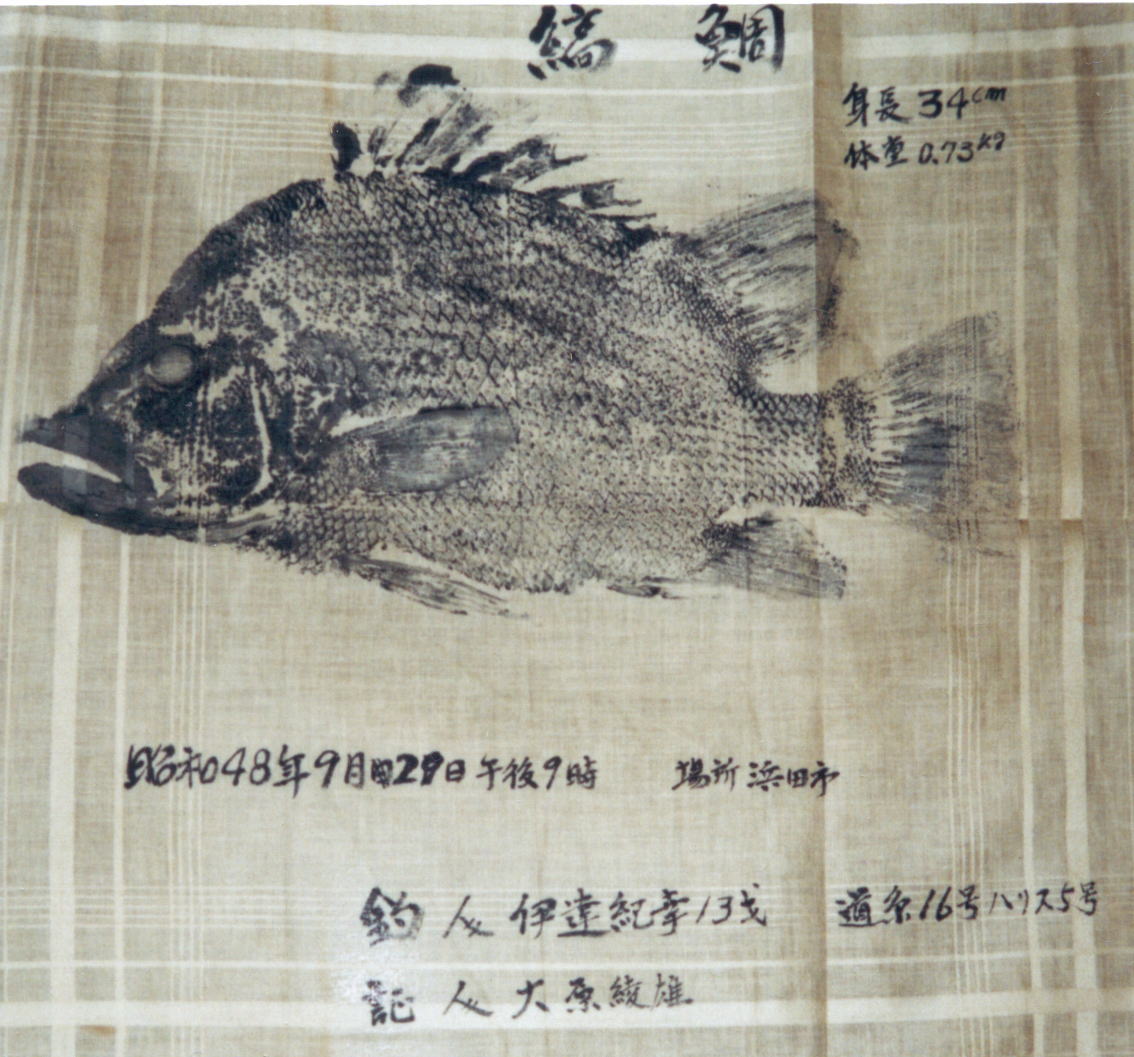 縞鯛
身長 34cm
体重 0.73kg
昭和48年9月29日 午後9時 場所 浜田市
釣人 伊達紀幸 13才 道糸16号 ハリス5号
記人 大原綾雄